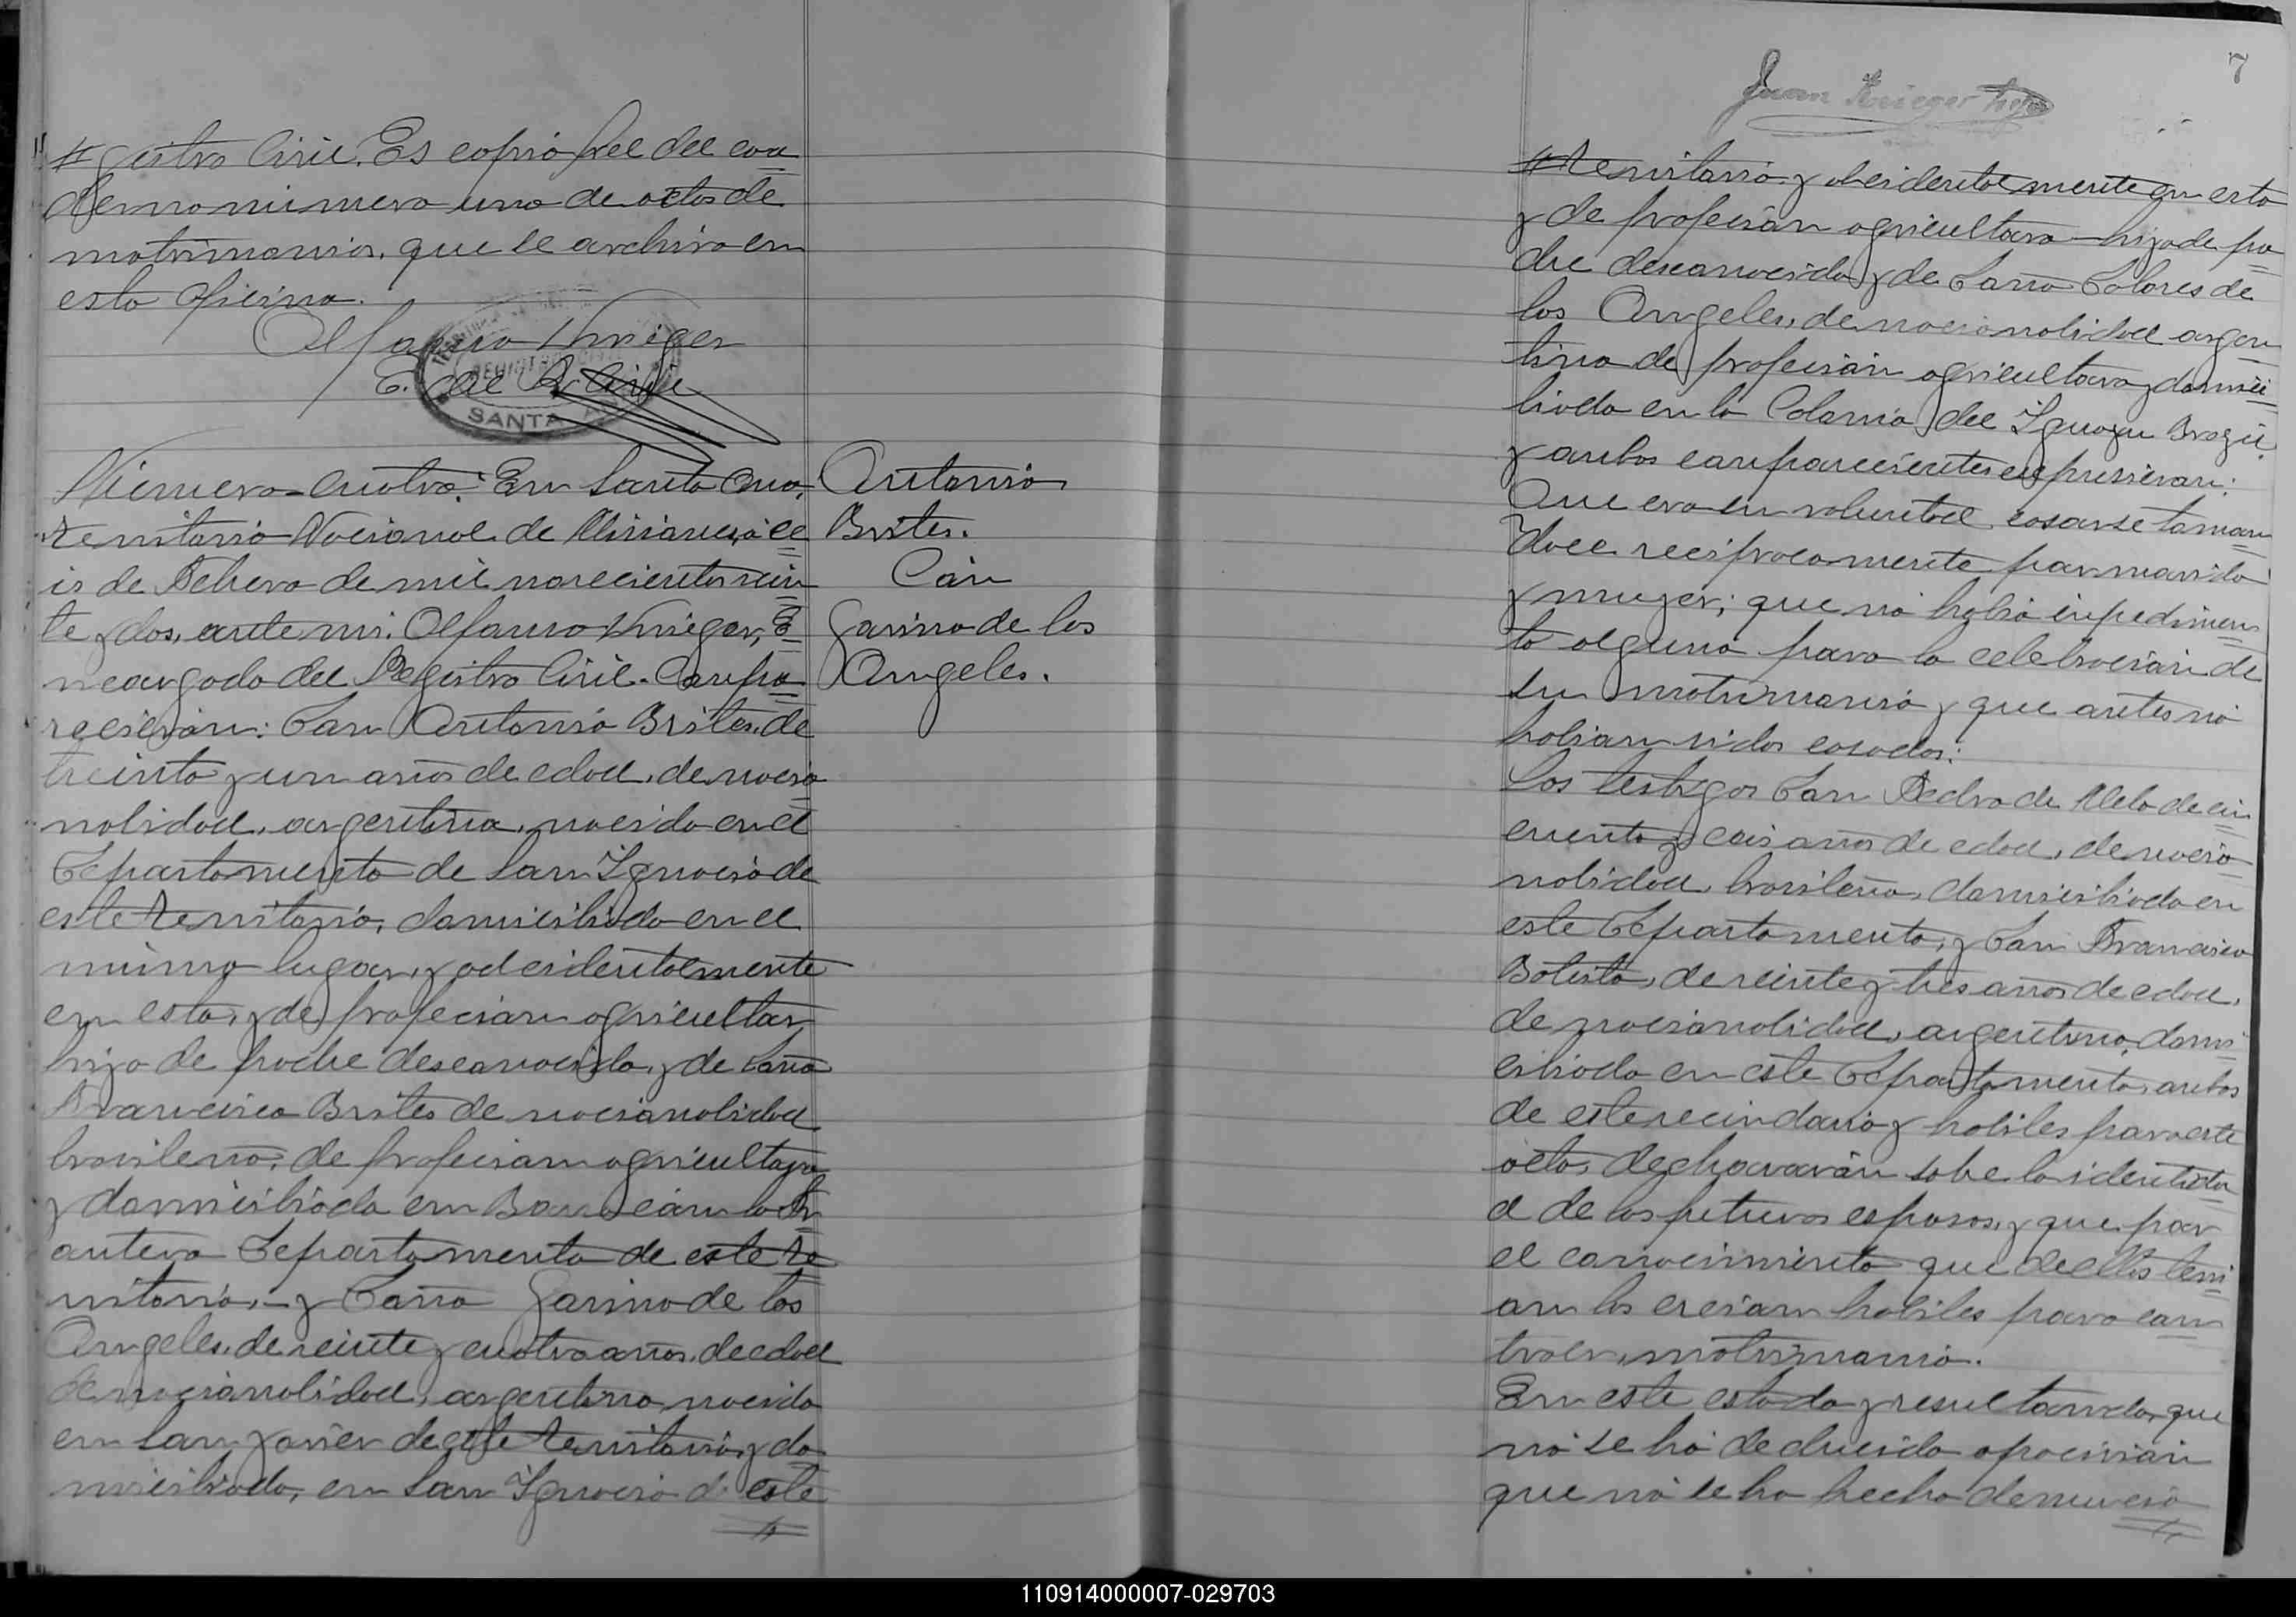 gistro Civil. Es copia fiel del cua
derno numero uno de actos de
matrimonios, que se archiva en
esta oficina.
Alfonso Krieger
E. del R. Civil
REGISTRO CIVIL
SANTA ANA
Número cuatro: En Santa Ana,
Territorio Nacional de Misiones, á ce
is de Febrero de mil novecientos vein
te y dos, ante mi. Alfonso Krieger, E
ncargado del Registro Civil. Compa
recierón: Don Antonio Brites, de
treinta y un años de edad, de nacio
nalidad, argentina, nacido en el
Departamento de San Ignacio de
este Territorio, domiciliado en el
mismo lugar, y accidentalmente
en esta, y de profeción agricultor,
hijo de padre desconocido, y de Doña
Francisca Brites de nacionalidad
brasileña, de profeción agricultora
y domiciliada en Bonpland
Departamento de este Te
rritorio, y Doña Janina de los
Angeles, de veinte y cuatro años, de edad
de nacionalidad, argentina, nacida
en San Javier de este Territorio, y do
miciliada, en San Ignacio de este
Antonio
Brites.
Cón
Janina de los
Angeles.
7
Juan Krieger hijo
Territorio, y accidentalmente en esta
y de profeción agricultora hija de pa
dre desconocido, y de Doña Dolores de
los Angeles, de nacionalidad argen
tina de profeción agricultora y domici
liada en la Colonia del Iguazu Brazil
y ambos comparecientes expresieron:
Que era su voluntad casarse toman
dose reciprocamente por marido
y mujer; que nó habia inpedimen
to alguno para la celebracion de
su matrimonio y que antes nó
habian sidos casados:
Los testigos Don Pedro de Melo de cin
cuenta y ceis años de edad, de nacio
nalidad, brasileña, domiciliado en
este Departamento, y Don Francisco
Botista, de veinte y tres años de edad,
de nacionalidad, argentina, domi
ciliado en este Departamento, ambos
de este vecindario y habiles para este
acto, declararón sobre la identida
d de los futuros esposos, y que por
el conocimiento que de ellos teni
an los creian habiles para con
traer, matrimonio.
En este estado y resultando, que
nó se ha deducido oposición
que nó se ha hecho denuncia